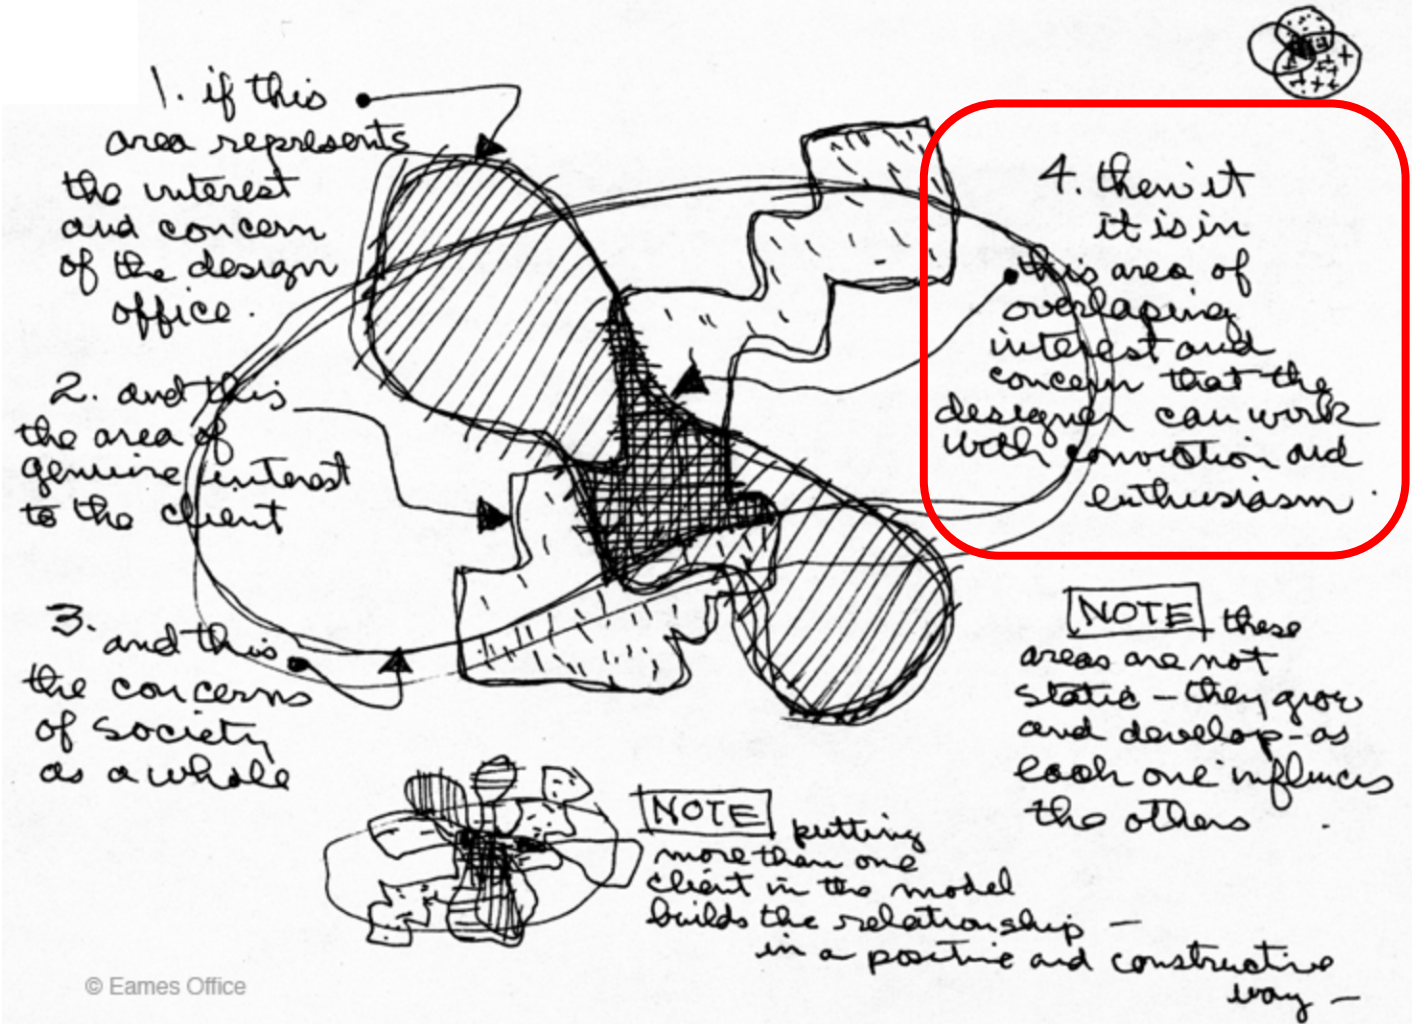 1. if this
area represents
the interest
and concern
of the design
office.
2. and this
the area of
genuine interest
to the client
3. and this
the concerns
of society
as a whole
4. then it
it is in
this area of
overlaping
interest and
concern that the
designer can work
with conviction and
enthusiasm
NOTE these
areas are not
static – they grow
and develop – as
each one influences
the others
NOTE putting
more than one
client in the model
builds the relationship –
in a positive and constructive
way –
© Eames Office